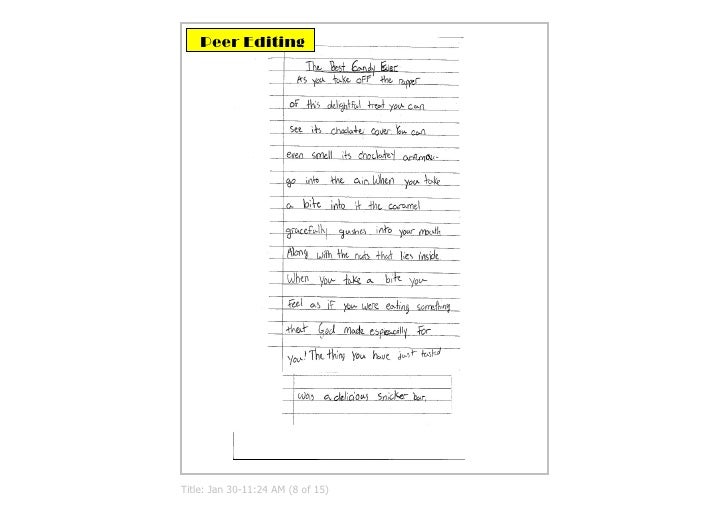 Peer Editing
The Best Candy Ever
As you take off the rapper
of this delightful treat you can
see its choclate cover. You can
even smell its choclatey
go into the air. When you take
a bite into it the caramel
gracefully gushes into your mouth
Along with the nuts that lies inside.
When you take a bite you
feel as if you were eating something
that God made especially for
you! The thing you have just tasted
was a delicious snicker bar.
Title: Jan 30-11:24 AM (8 of 15)